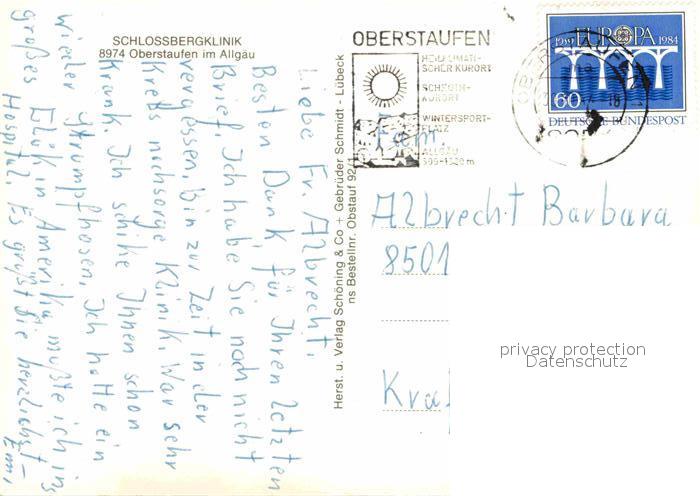 SCHLOSSBERGKLINIK
8974 Oberstaufen im Allgäu
Liebe Fr. Albrecht.
Besten Dank, für Ihren letzten
Brief. Ich habe Sie noch nicht
vergessen, bin zur Zeit in der
Krebs nachsorge Klinik. War sehr
Krank. Ich schike Ihnen schon
wieder Strumpfhosen. Ich hatte ein
großes Glük in Amerika mußte ich ins
Hospital. Es grüßt Sie herzlichst
Emi.
Herst. u. Verlag Schöning & Co + Gebrüder Schmidt - Lübeck
ns Bestellnr. Obstauf 92
OBERSTAUFEN
HEILKLIMATI-
SCHER KURORT
SCHROTH-
KURORT
WINTERSPORT-
PLATZ
ALLGÄU
EUROPA
1959 1984
60
DEUTSCHE BUNDESPOST
Fam.
Albrecht Barbara
8501
Kra
privacy protection
Datenschutz